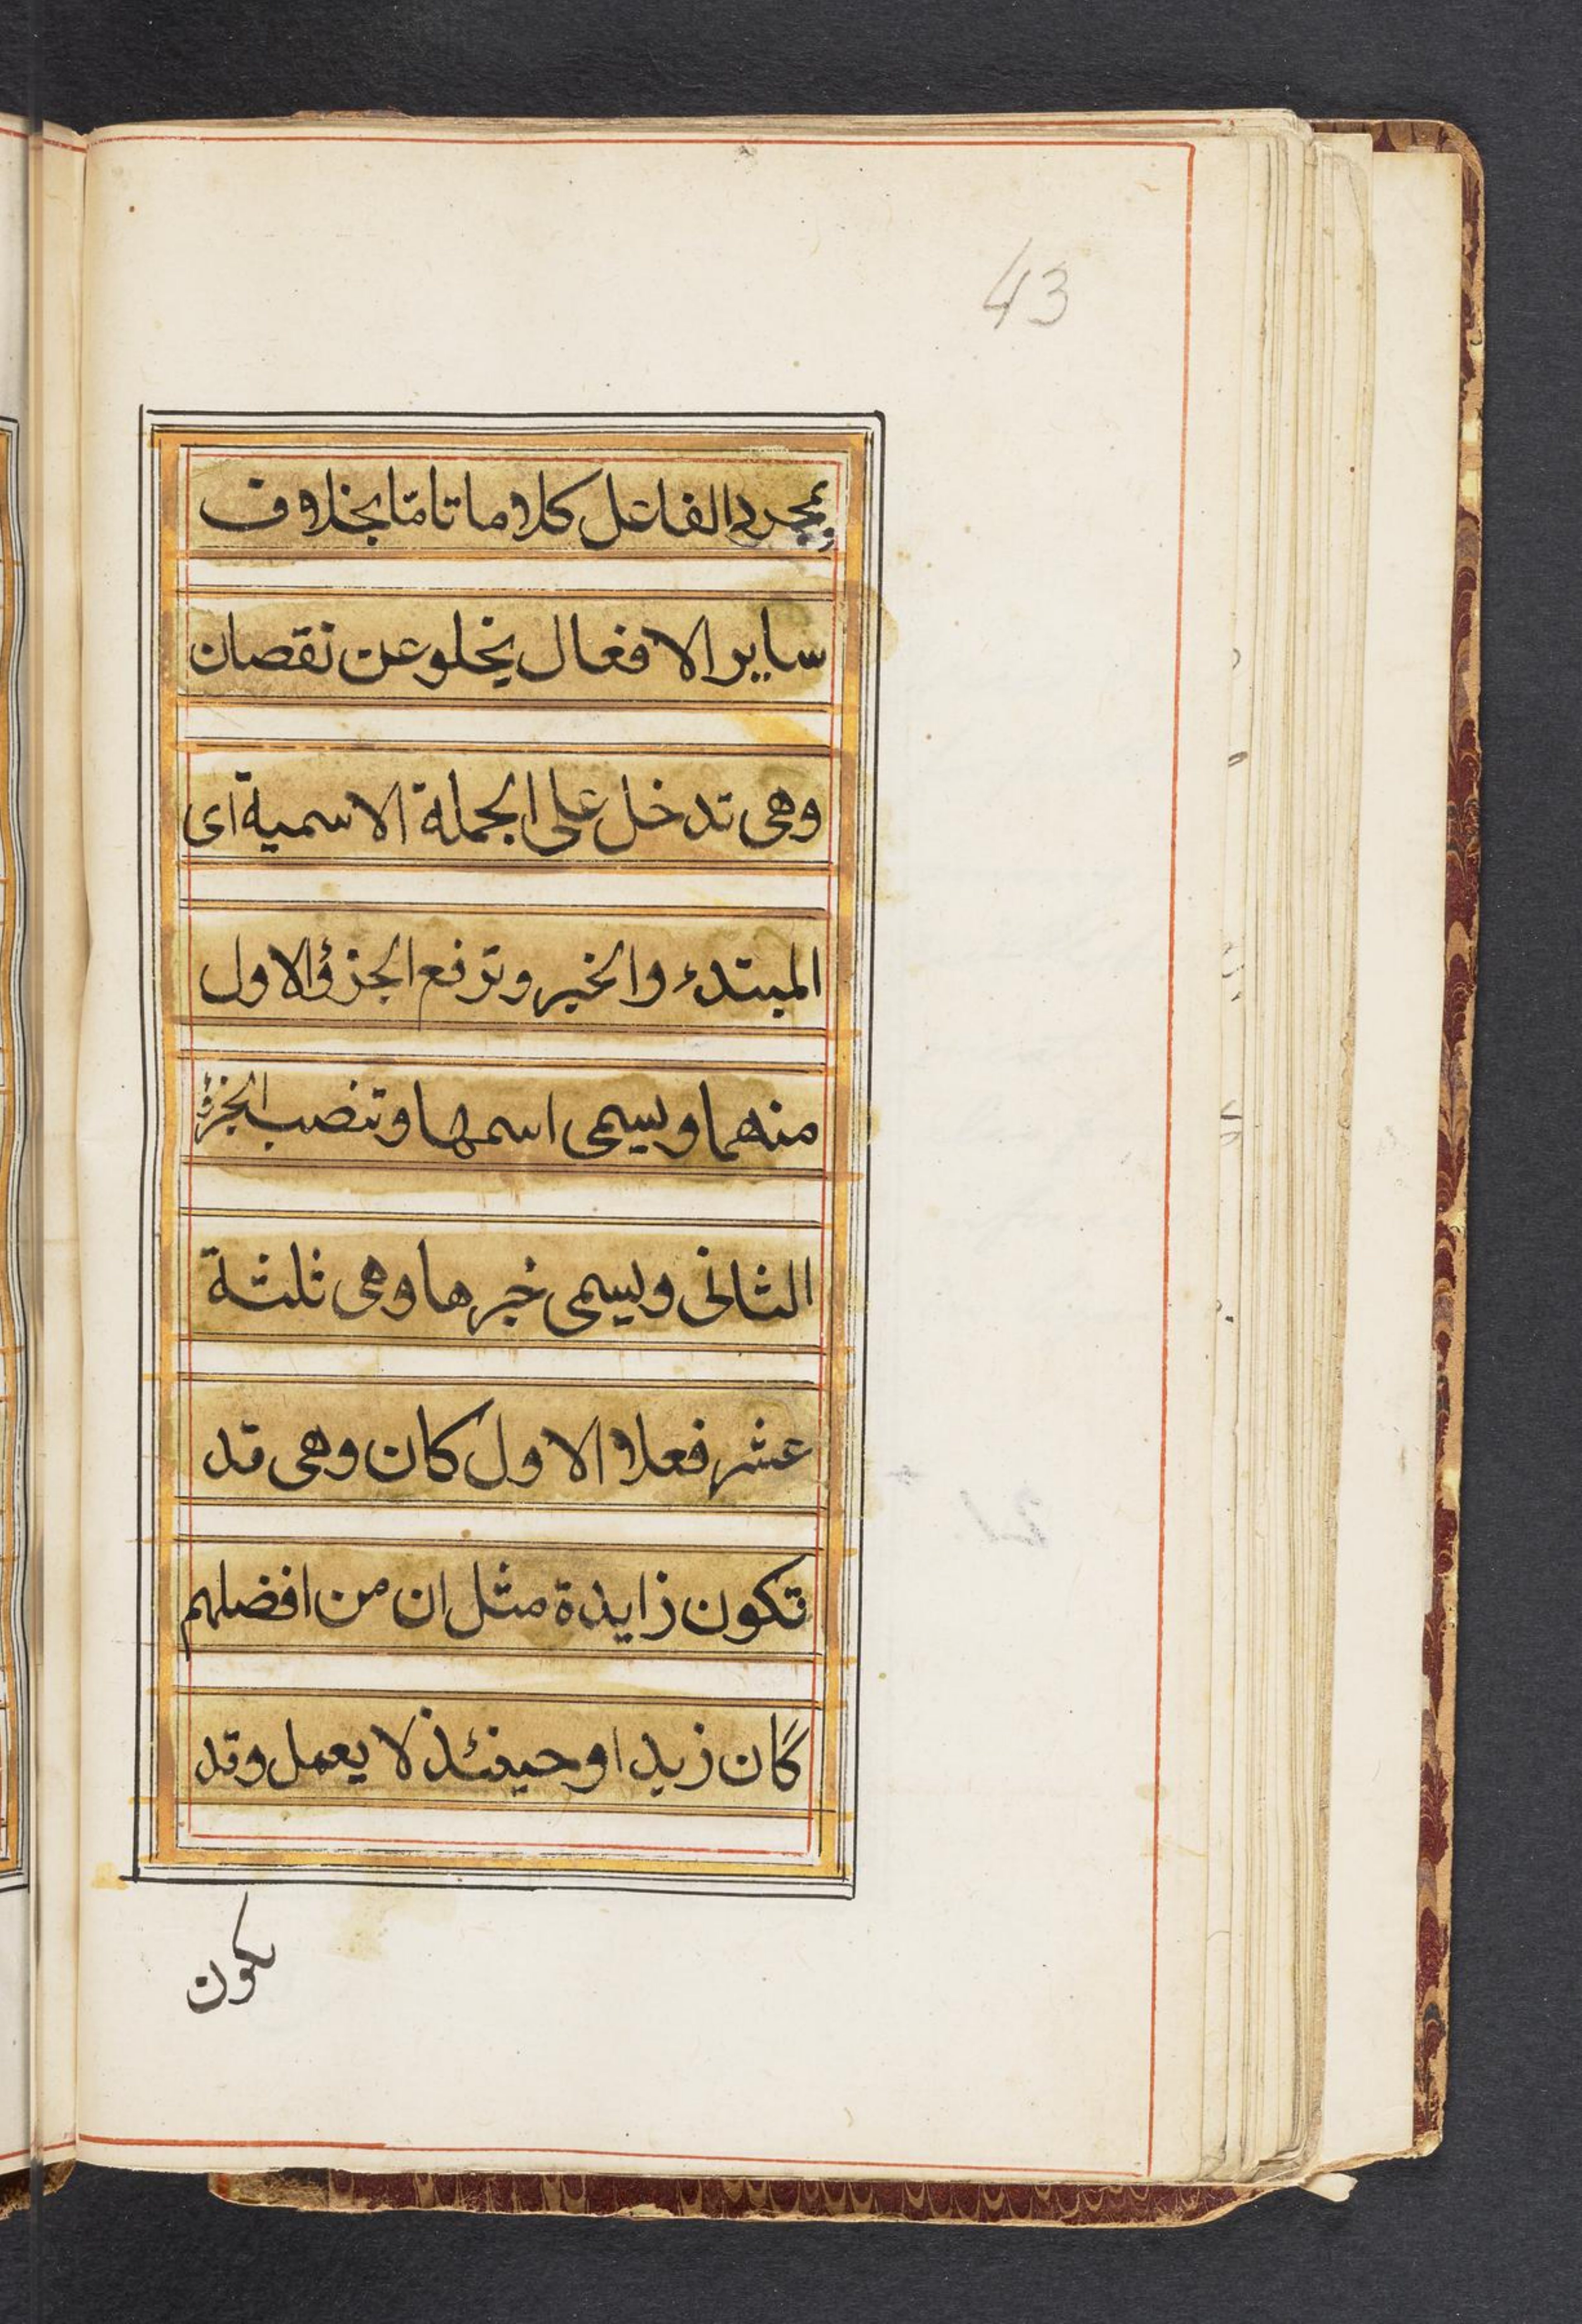 43
بمجرد الفاعل كلاما تامّا بخلاف
ساير الافعال يخلو عن نقصان
وهى تدخل على الجملة الاسمية اى
المبتدء والخبر وترفع الجزؤ الاول
منهما ويسمى اسمها وتنصب الجزؤ
الثانى ويسمى خبرها وهى ثلثة
عشر فعلا الاول كان وهى قد
تكون زايدة مثل ان من افضلهم
كان زيدا وحينئذ لا يعمل وقد
يكون